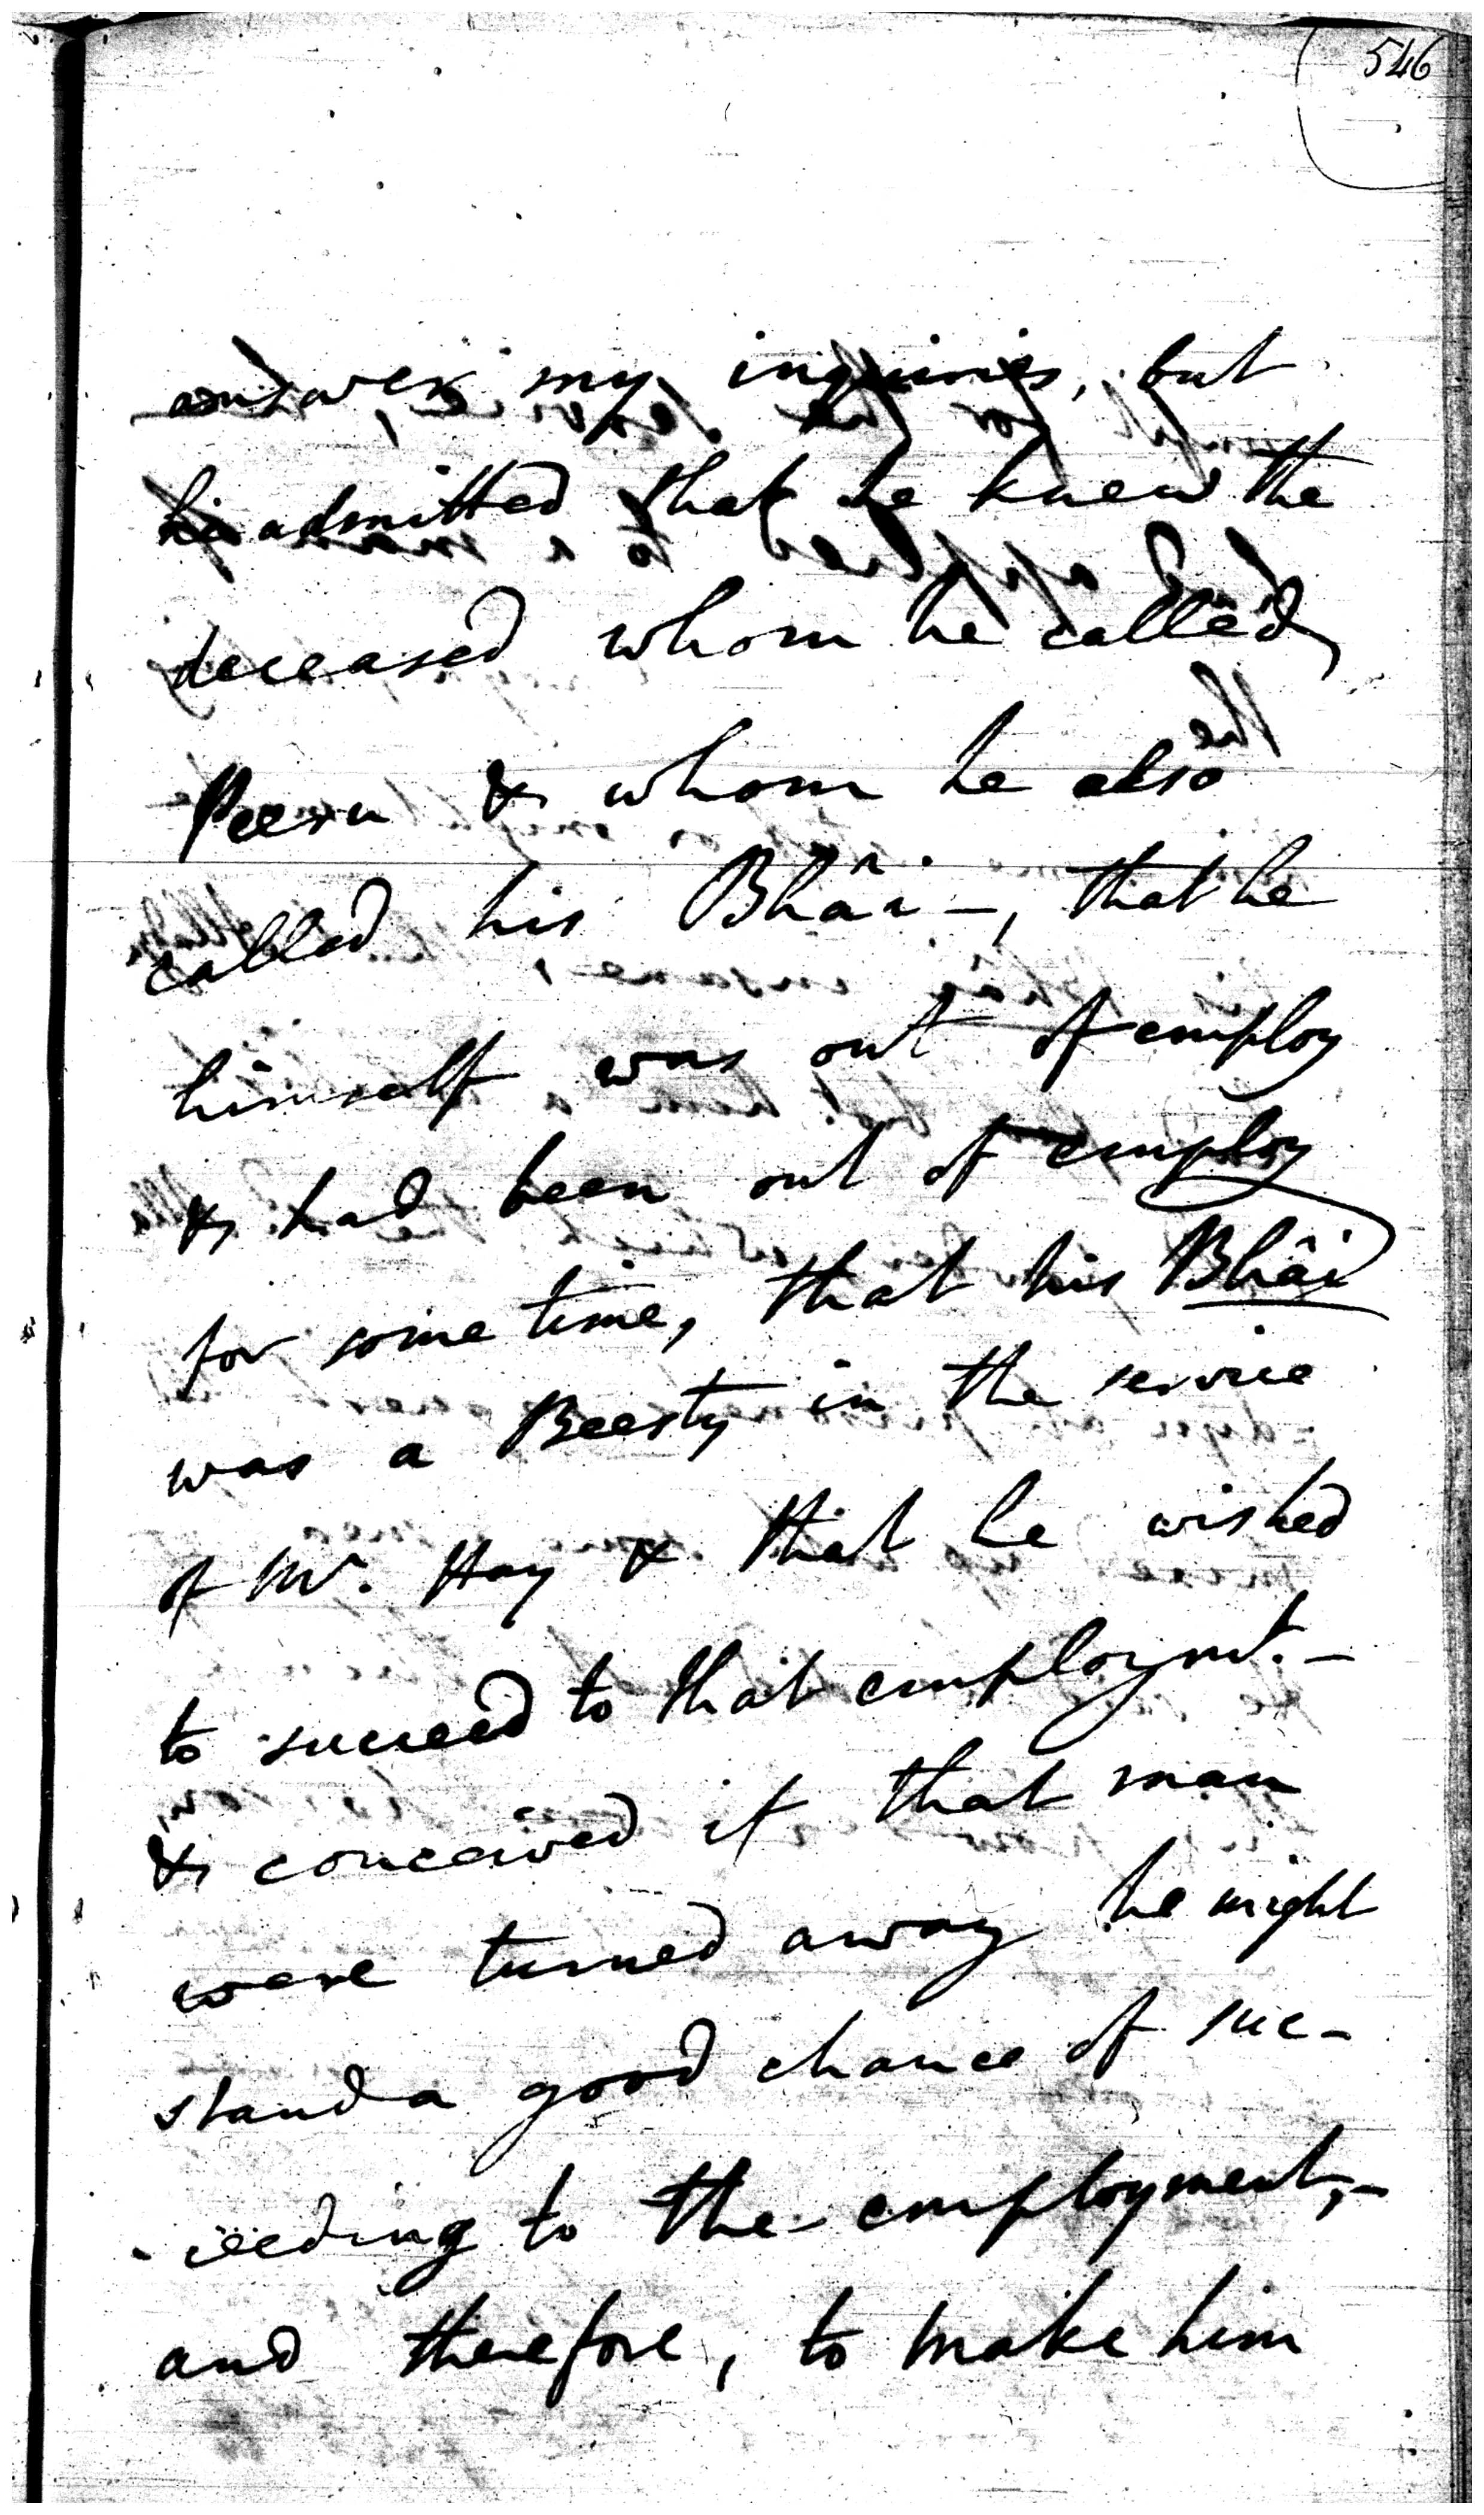 546
answer my inquiries, but
he admitted that he knew the
deceased whom he called
Peeru & whom he also
called his Bhâi -, that he
himself was out of employ
& had been out of employ
for some time, that his Bhâi
was a Beesty in the service
of Mr. Hay & that he wished
to succeed to that employmt. -
& conceived if that man
were turned away he might
stand a good chance of suc-
-ceeding to the employment, -
and therefore, to make him